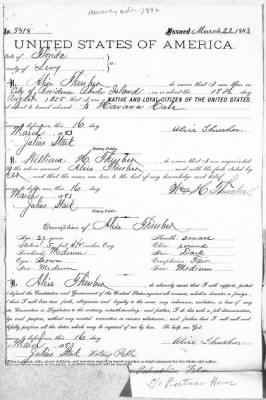 No. 5418 Issued March 22, 1883
UNITED STATES OF AMERICA.
State of Florida
County of Levy
I, Alice Thurber, do swear that I was born in
City of Providence Rhode Island on or about the 18th day
August 1855 that I am a NATIVE AND LOYAL CITIZEN OF THE UNITED STATES,
about to travel abroad to Havana Cuba
before me, this 16 day
March 1883 Alice Thurber
Julius Stark
Notary Public.
I, William H. Thurber, do swear that I am acquainted
with the above-named Alice Thurber and with the facts
before me, this 16 day
March 1883 Wm H. Thurber
Julius Stark
Notary Public.
Description of Alice Thurber
Age: 27 years Mouth: small
Stature: 5 feet inches Eng. Chin: round
Forehead: Medium Hair: Dark
Eyes: Brown Complexion: Fair
Nose: Medium Face: Medium
I, Alice Thurber, do solemnly swear that I will support, protect
and defend the Constitution and Government of the United States against all enemies, whether domestic or foreign;
that I will bear true faith, allegiance and loyalty to the same, any ordinance, resolution, or law of any
State Convention or Legislature to the contrary notwithstanding; and further, I do this with a full determination,
pledge and purpose, without any mental reservation or evasion whatsoever; and further that I will well and
faithfully perform all the duties which may be required of me by law. So help me God.
before me, this 16 day
March 1883 Alice Thurber
Julius Stark Notary Public